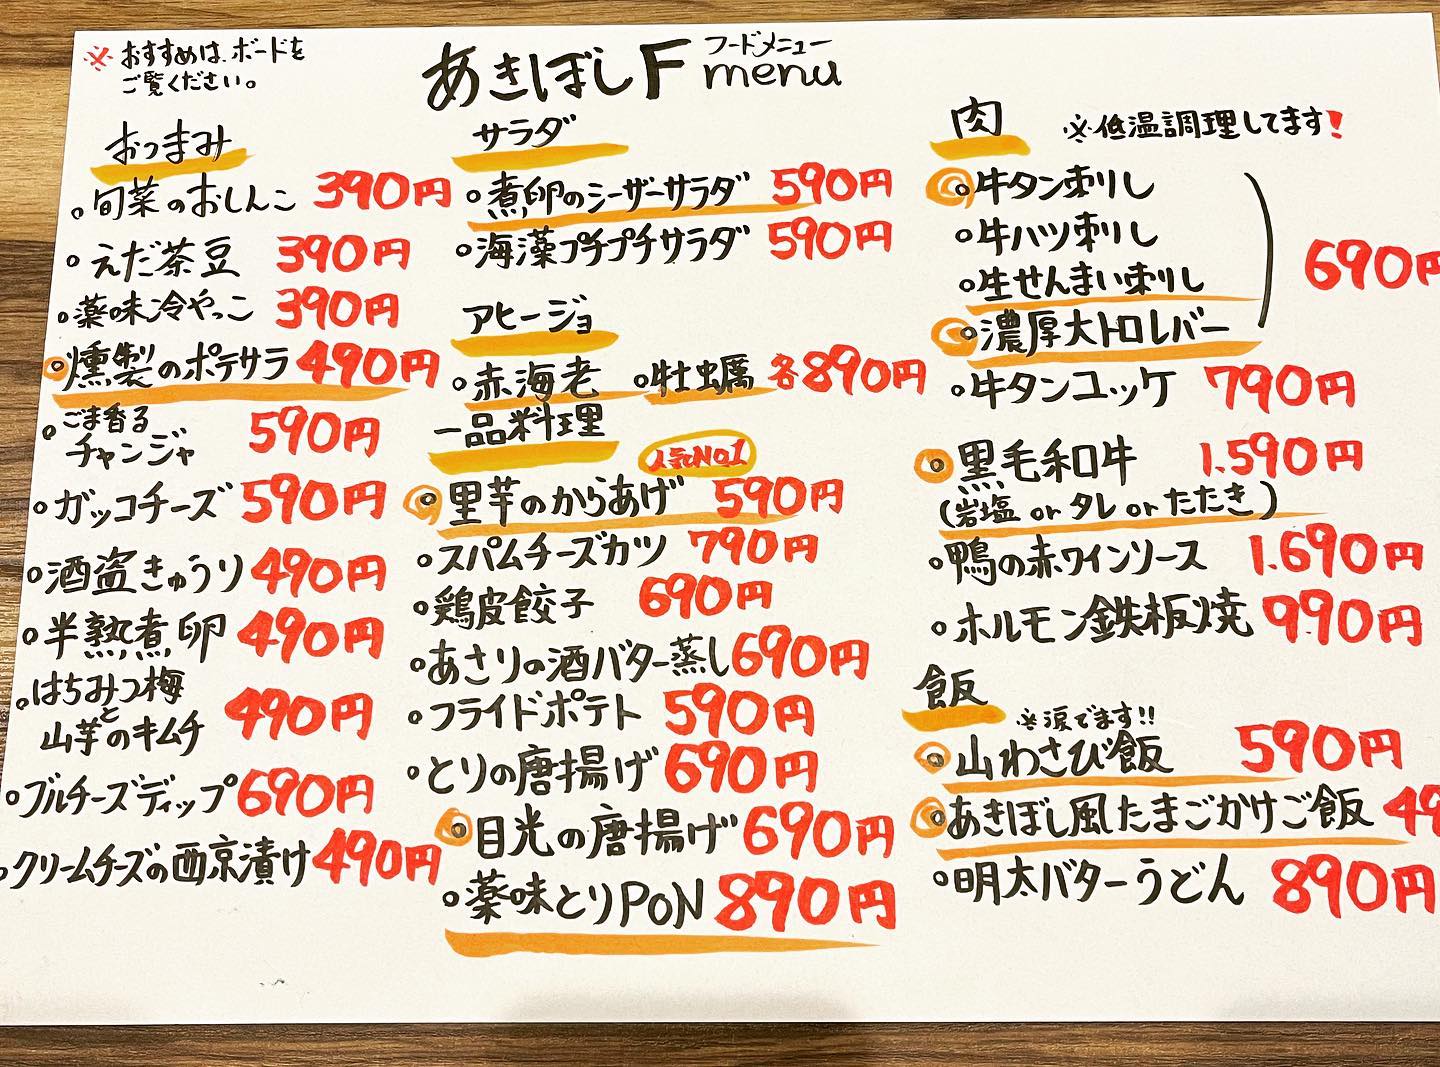 ※おすすめは、ボードを
ご覧ください。
あきぼしF フードメニュー
menu
おつまみ
旬菜のおしんこ 390円
えだ茶豆 390円
薬味冷やっこ 390円
燻製のポテサラ 490円
ごま香る
チャンジャ 590円
ガッコチーズ 590円
酒盗きゅうり 490円
半熟煮卵 490円
はちみつ梅
と
山芋のキムチ 490円
ブルーチーズディップ 690円
クリームチーズの西京漬け 490円
サラダ
煮卵のシーザーサラダ 590円
海藻プチプチサラダ 590円
アヒージョ
赤海老 牡蠣 各890円
一品料理
人気No1
里芋のからあげ 590円
スパムチーズカツ 790円
鶏皮餃子 690円
あさりの酒バター蒸し 690円
フライドポテト 590円
とりの唐揚げ 690円
目光の唐揚げ 690円
薬味とりPON 890円
肉 ※低温調理してます!
牛タン刺し
牛ハツ刺し
生せんまい刺し 690円
濃厚大トロレバー
牛タンユッケ 790円
黒毛和牛 1.590円
(岩塩 or タレ or たたき)
鴨の赤ワインソース 1.690円
ホルモン鉄板焼 990円
飯
※涙でます!!
山わさび飯 590円
あきぼし風たまごかけご飯 49
明太バターうどん 890円